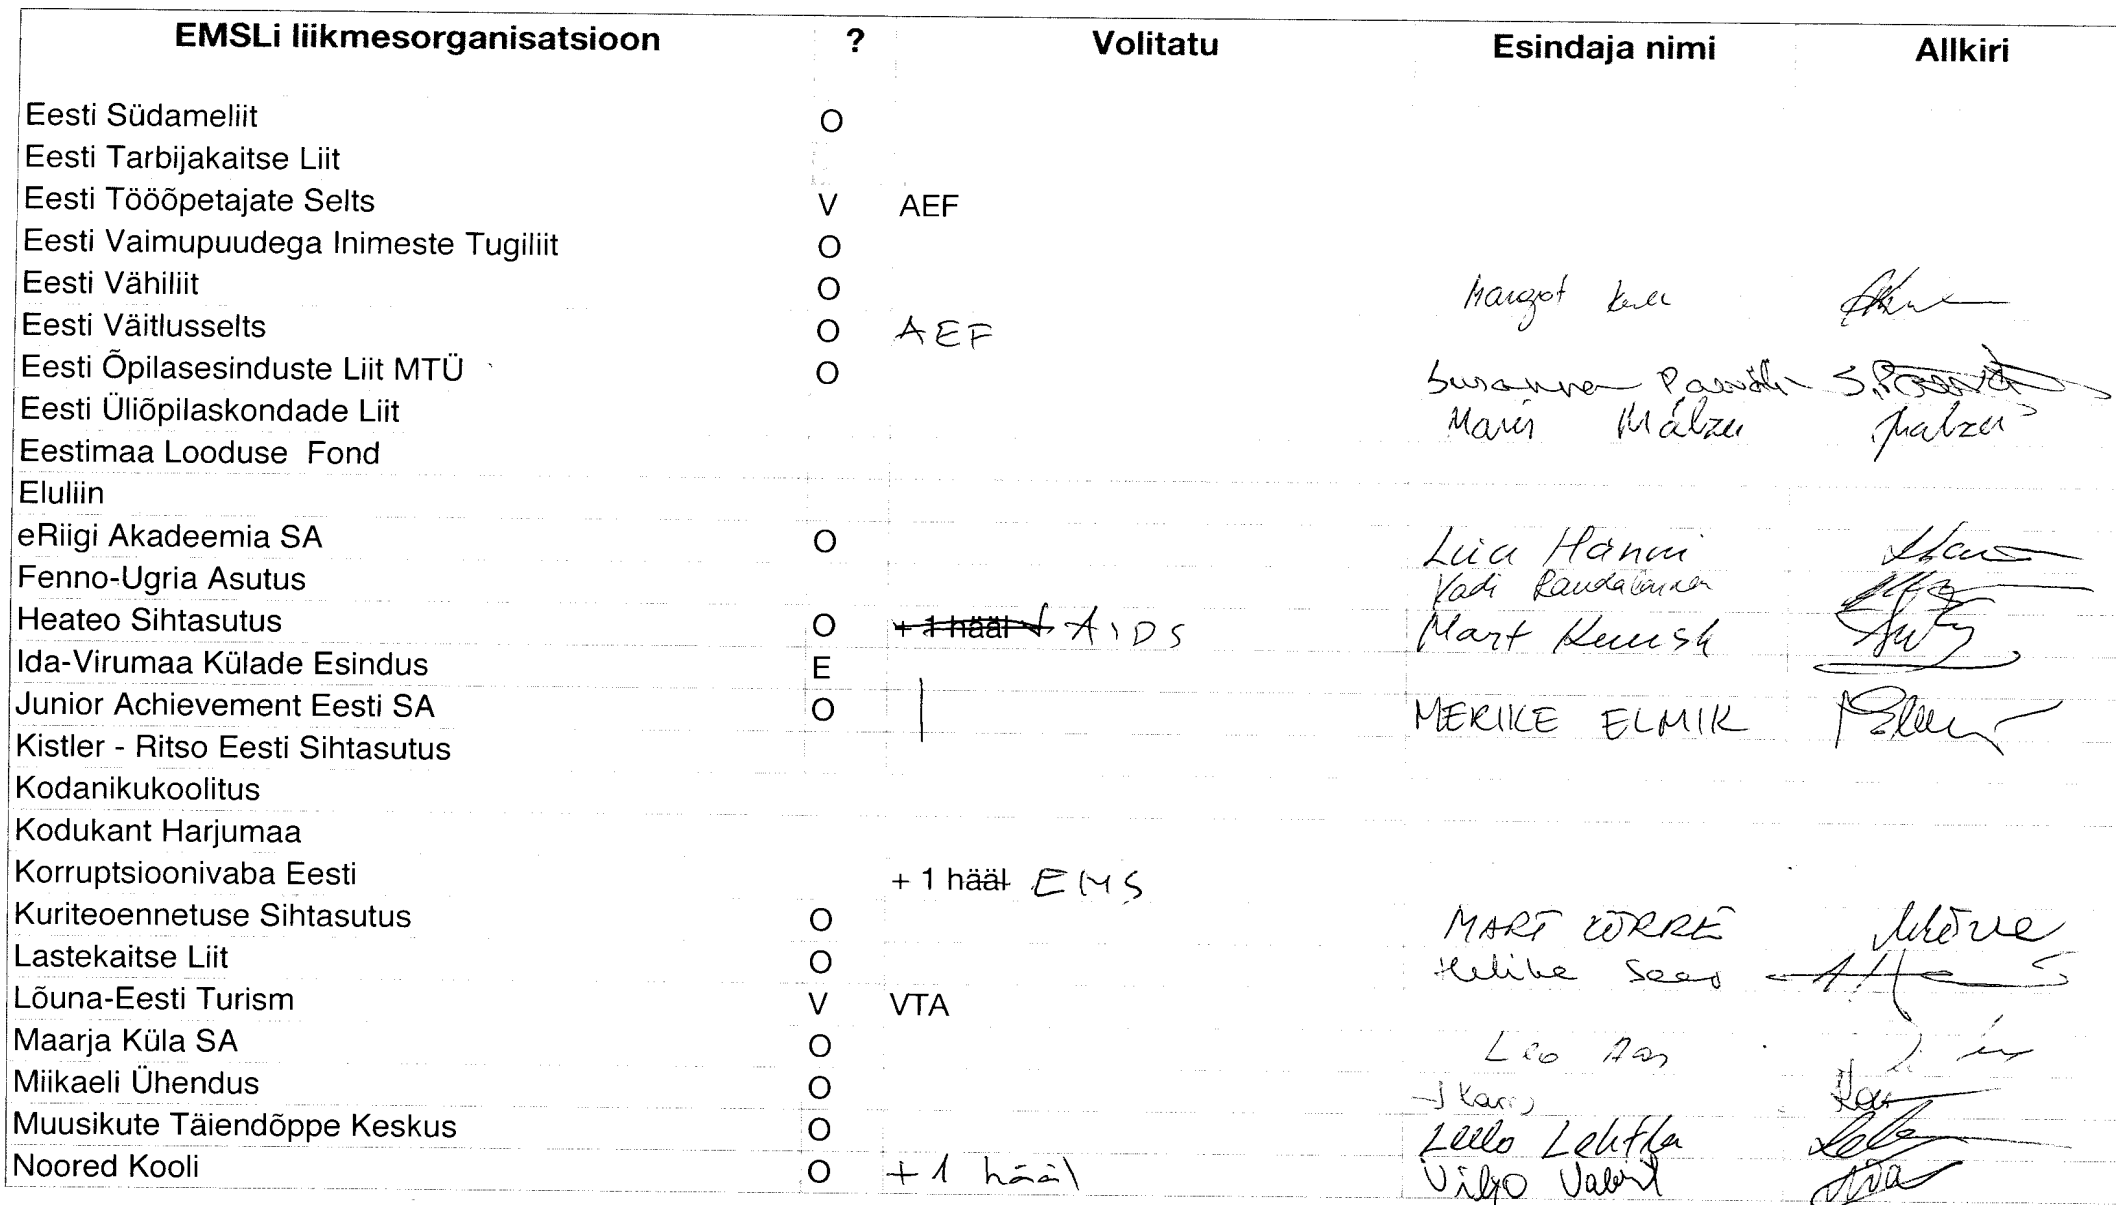 EMSLi liikmesorganisatsioon ? Volitatu Esindaja nimi Allkiri
Eesti Südameliit O
Eesti Tarbijakaitse Liit
Eesti Tööõpetajate Selts V AEF
Eesti Vaimupuudega Inimeste Tugiliit O
Eesti Vähiliit O Margot
Eesti Väitlusselts O AEF
Eesti Õpilasesinduste Liit MTÜ O Susanna
Eesti Üliõpilaskondade Liit Maris Mälzer
Eestimaa Looduse Fond
Eluliin
eRiigi Akadeemia SA O Liia Hänni
Fenno-Ugria Asutus Kadi
Heateo Sihtasutus O + 1 hääl AIDS Mart Kuusk
Ida-Virumaa Külade Esindus E
Junior Achievement Eesti SA O MERIKE ELMIK
Kistler - Ritso Eesti Sihtasutus
Kodanikukoolitus
Kodukant Harjumaa
Korruptsioonivaba Eesti + 1 hääl EMS
Kuriteoennetuse Sihtasutus O MART KÕRRE
Lastekaitse Liit O Helike Saar
Lõuna-Eesti Turism V VTA
Maarja Küla SA O Leo Aas
Miikaeli Ühendus O
Muusikute Täiendõppe Keskus O Lehtla
Noored Kooli O + 1 hääl